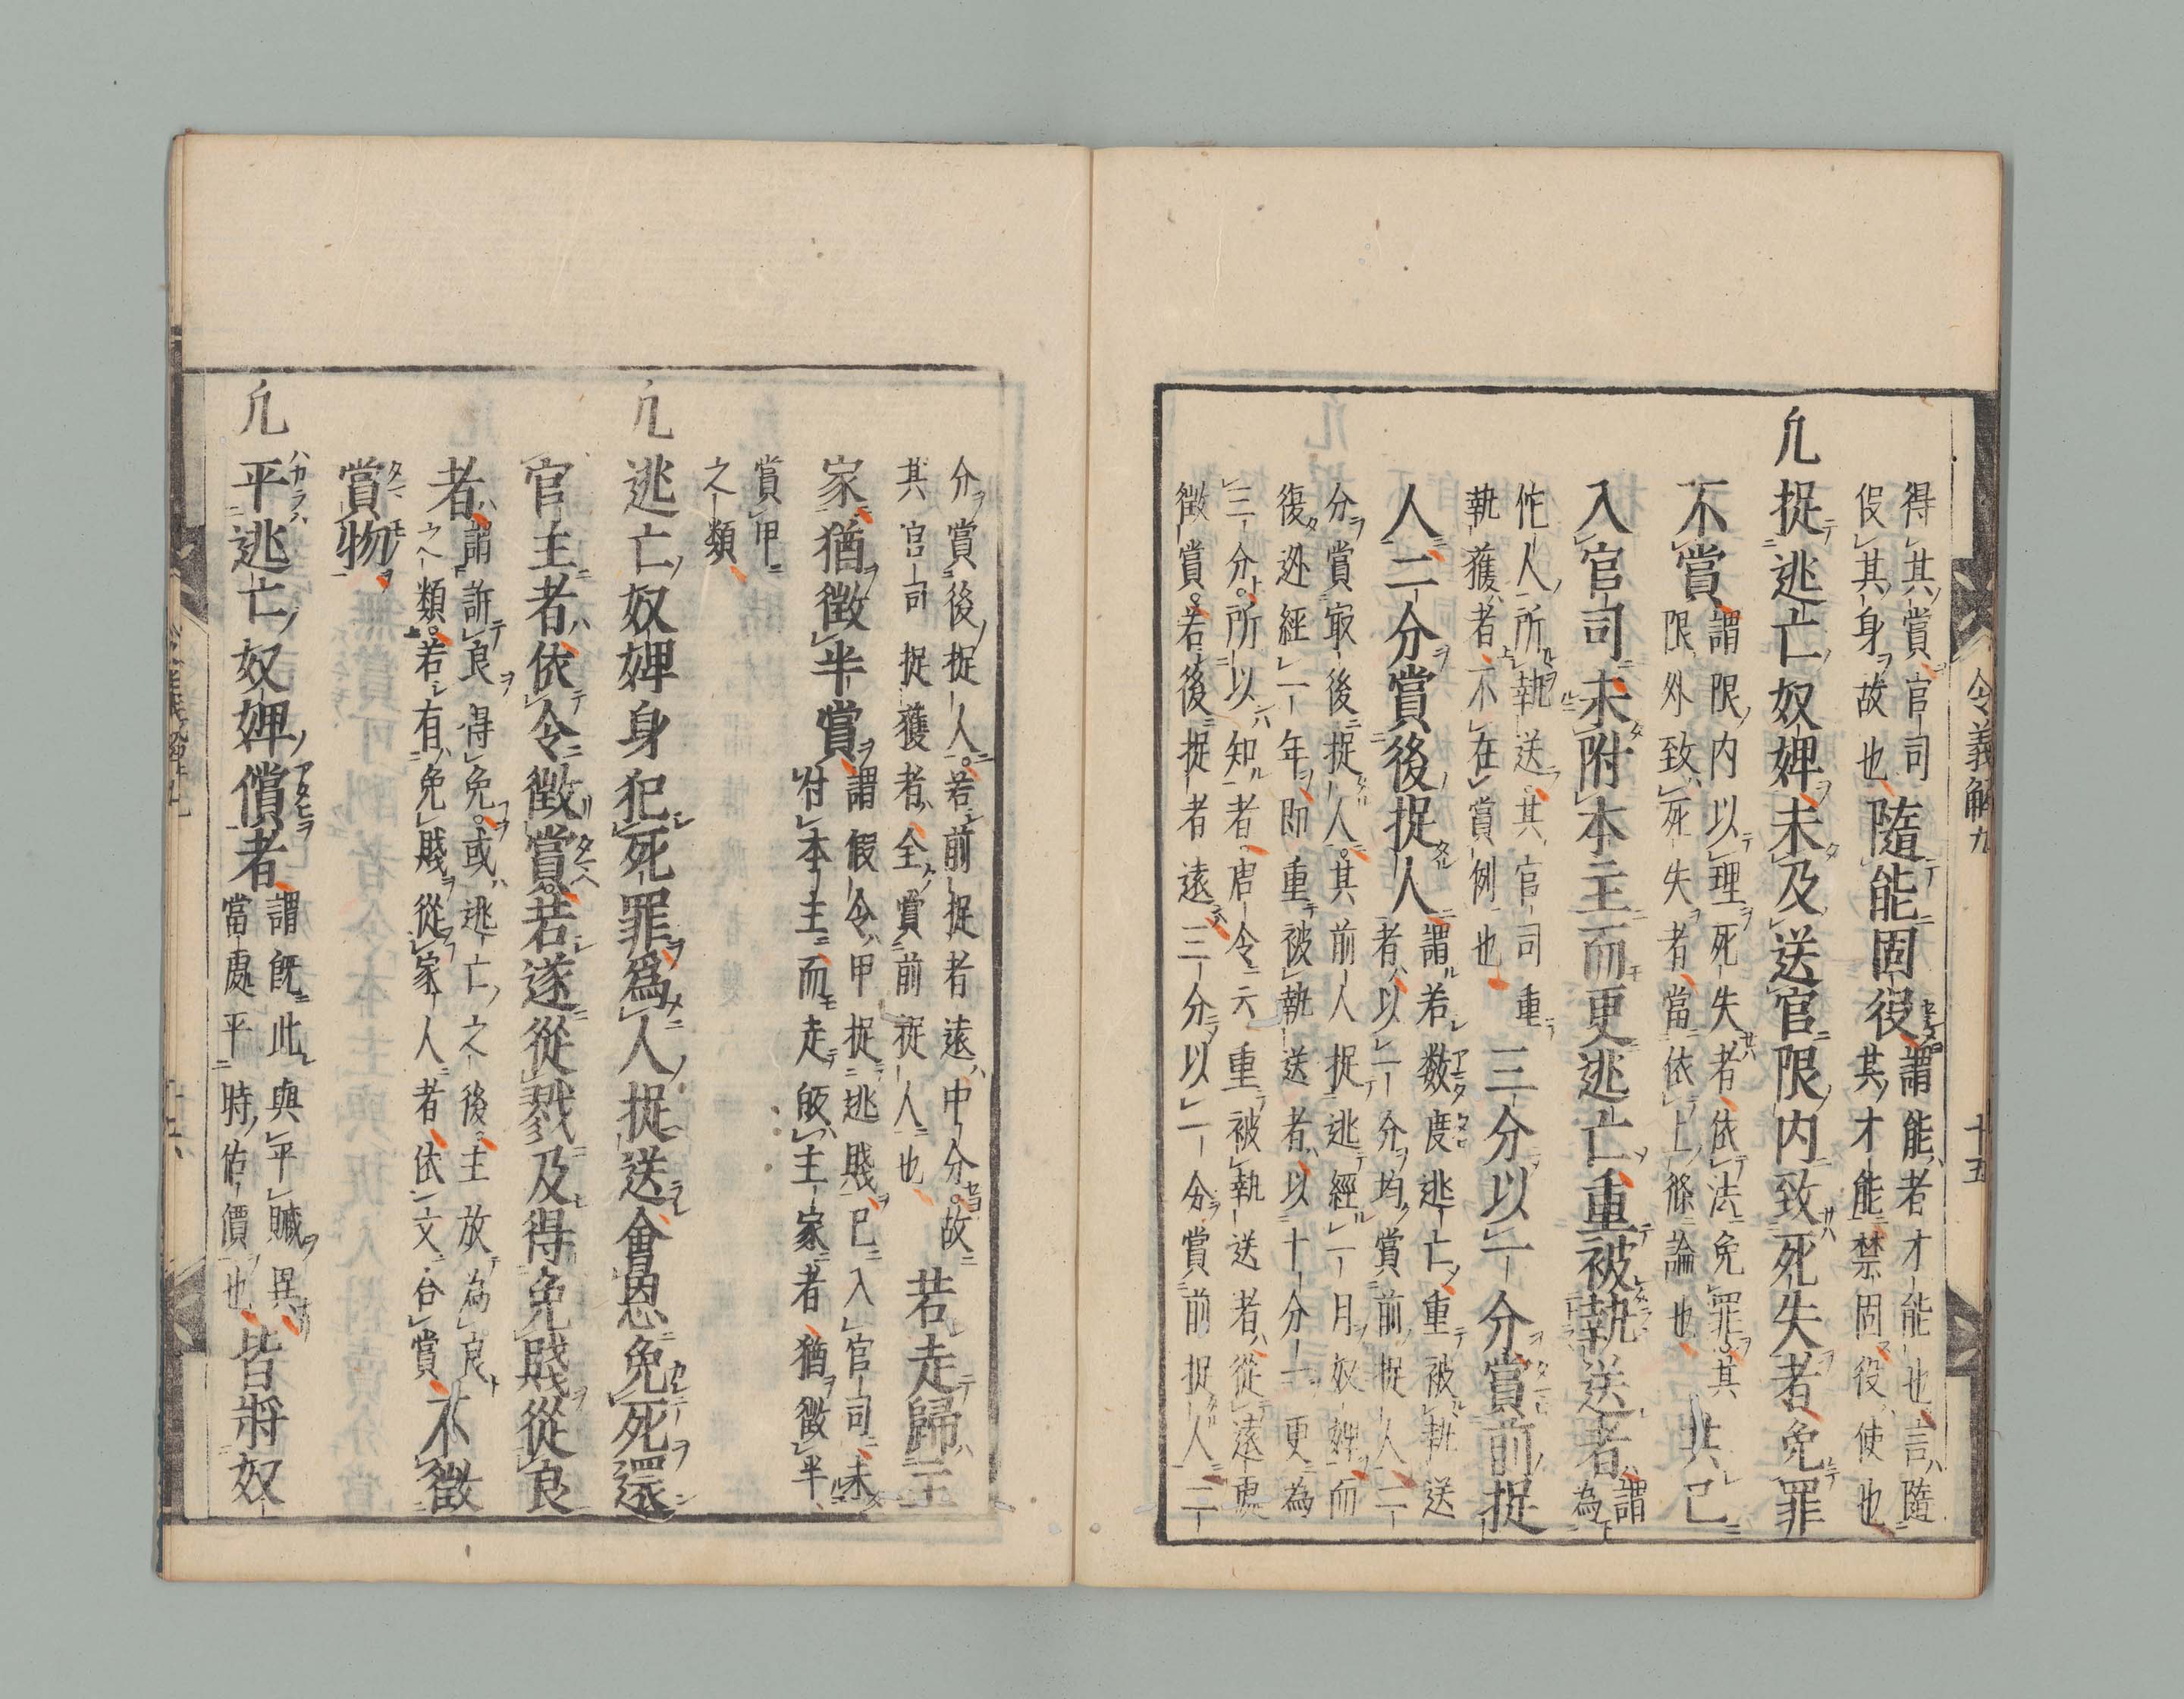 得其賞官司
役其身故也
隨能固役
謂能者才能也言隨
其才能禁固役使也
凢捉逃亡奴婢未及送官限内致死失者免罪
不賞
謂限内以理死失者依法免罪其
限外致死失者當依上條論也
其已
入官司未附本主而更逃亡重被執送者
謂
為
佗人所執送其官司重
執獲者不在賞例也
三分以一分賞前捉
人二分賞後捉人
謂若數度逃亡重被執送
者以一分均賞前捉人二
分賞冣後捉人其前人捉逃經一月奴婢而
復逃經一年即重被執送者以十分一更為
三分所以知者唐令云重被執送者從遠處
徵賞若後捉者遠三分以一分賞前捉人二
令義解九
十五
分賞後捉人若前捉者遠中分故
其官司捉獲者全賞前捉人也
若走歸主
家猶徴半賞
謂假令甲捉逃賤已入官司未
付本主而走皈主家者猶徴半
賞甲
之類
凢逃亡奴婢身犯死罪爲人捉送會恩免死還
官主者依令徴賞若遂從戮及得免賤從良
者
謂訴良得免或逃亡之後主放為良
之類若有免賤從家人者依文合賞
不徴
賞物
凢平逃亡奴婢價者
謂既此與平贓異
當處平時估價也
皆將奴